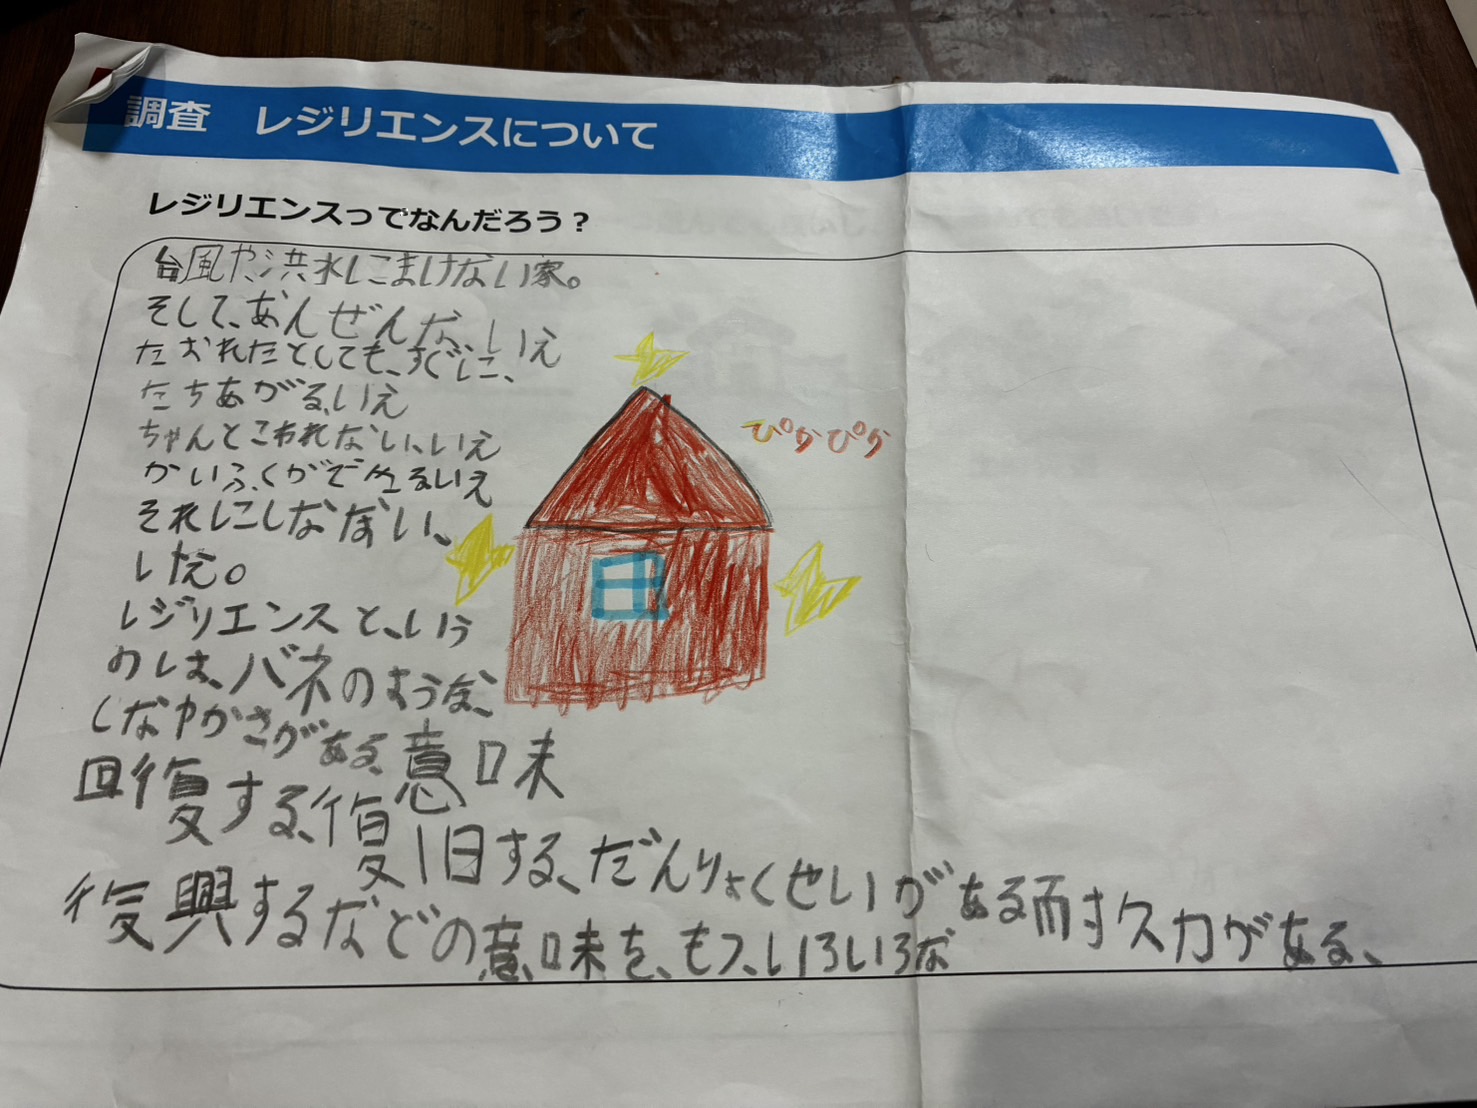 調査 レジリエンスについて
レジリエンスってなんだろう？
台風や洪水にまけない家。
そして、あんぜんな、いえ
たおれたとしても、すぐに、
たちあがる、いえ
ちゃんとこわれない、いえ
かいふくができるいえ
それにしなない、
いえ。
レジリエンスと、いう
のは、バネのような、
しなやかさがある、意味
回復する、復旧する、だんりょくせいがある耐久力がある、
復興するなどの意味を、もつ、いろいろな
ぴかぴか